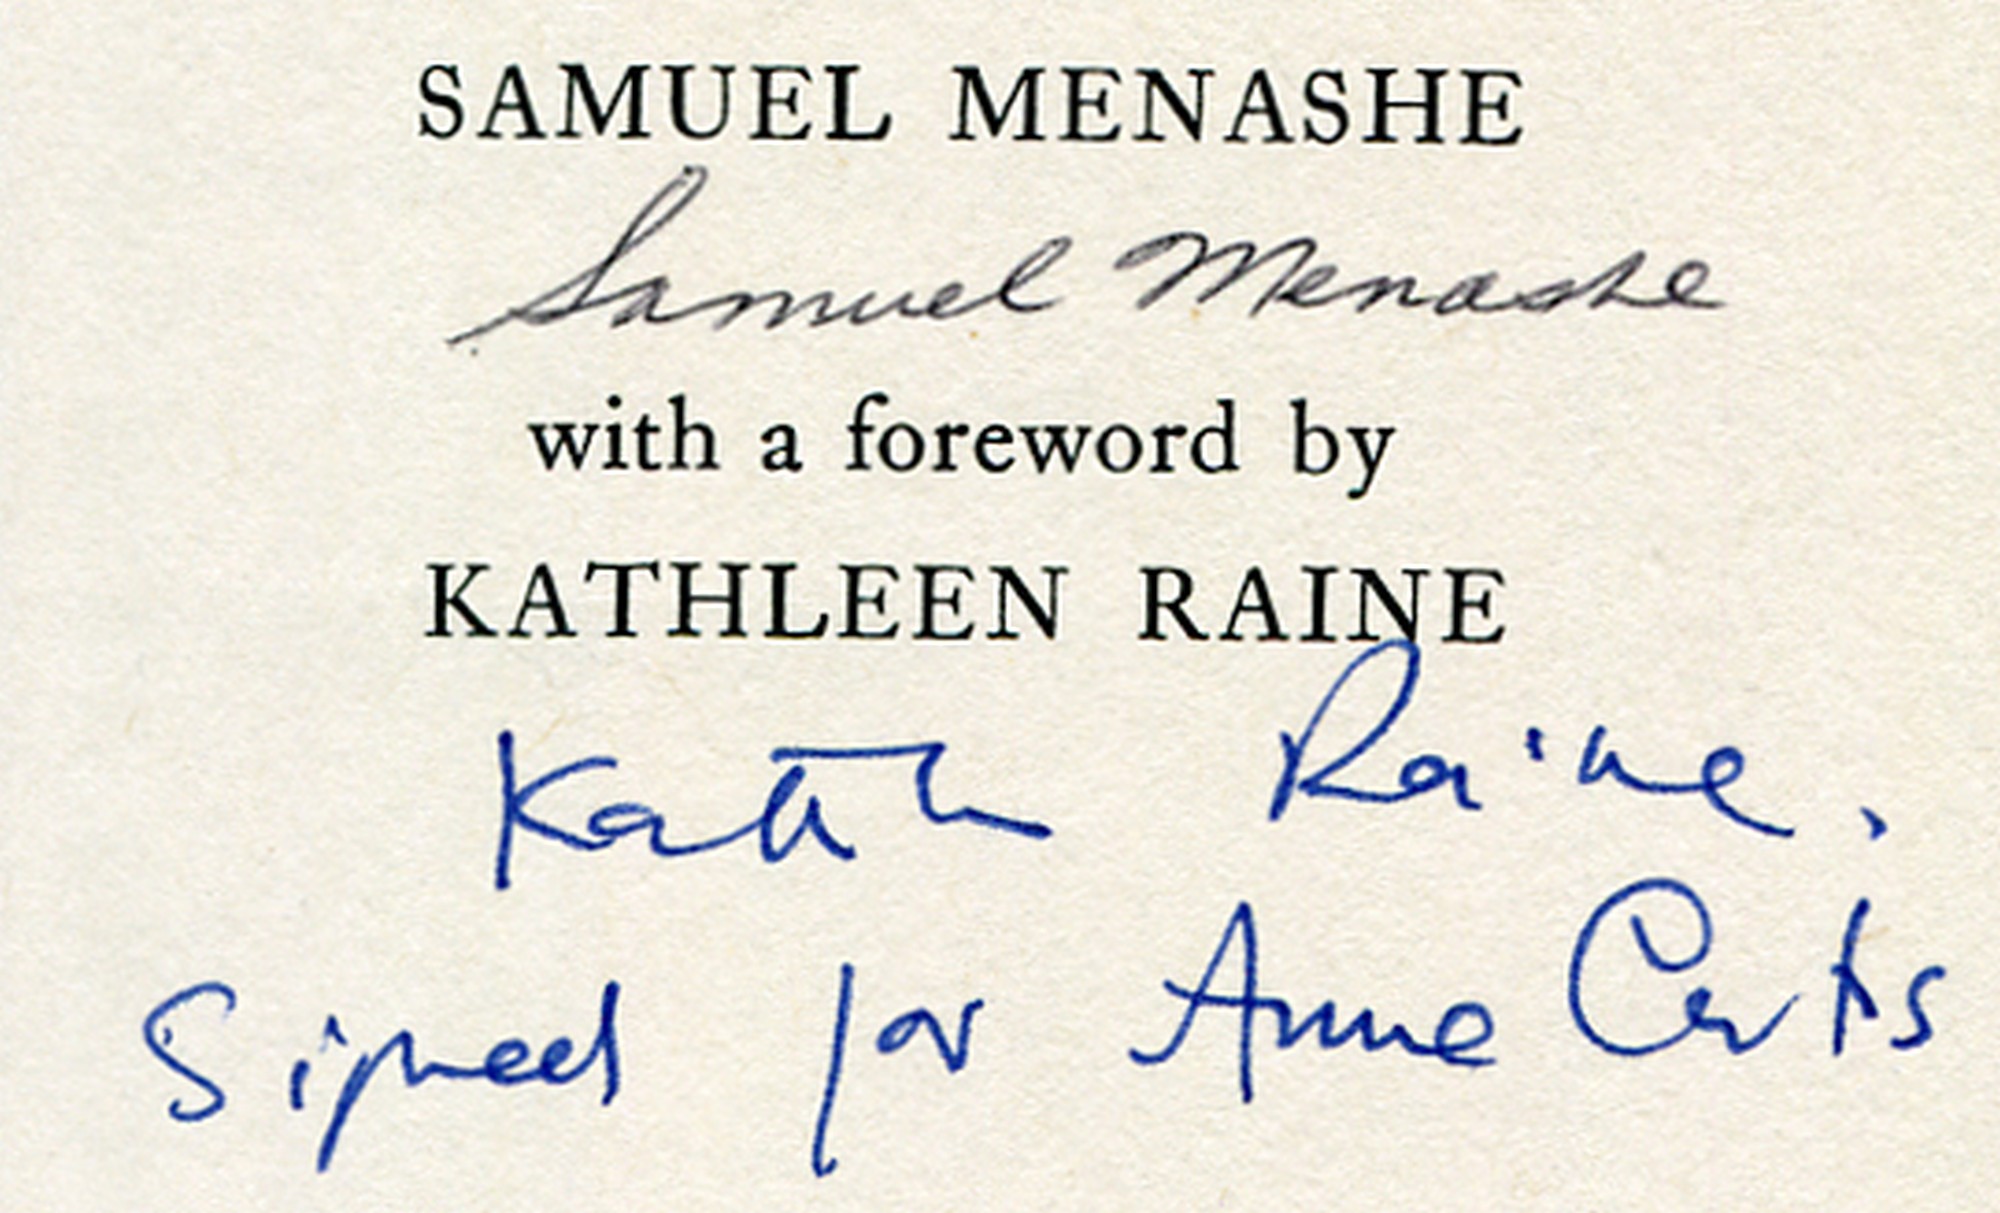 SAMUEL MENASHE
Samuel Menashe
with a foreword by
KATHLEEN RAINE
Kathleen Raine.
Signed for Anne Curtis